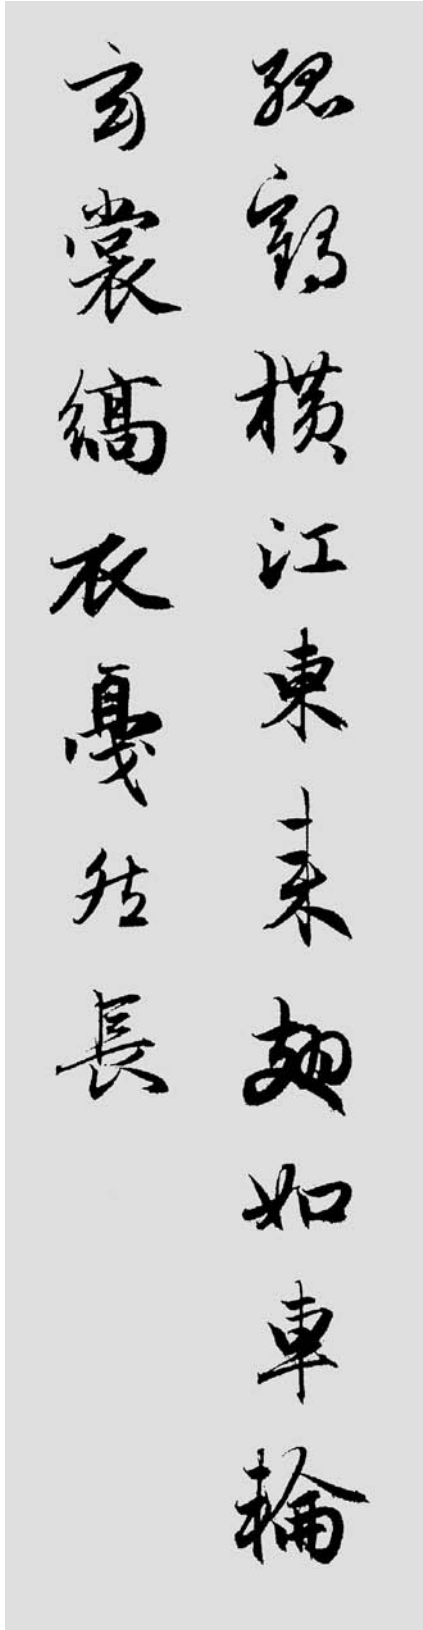 孤鶴橫江東來翅如車輪
玄裳縞衣戛然長